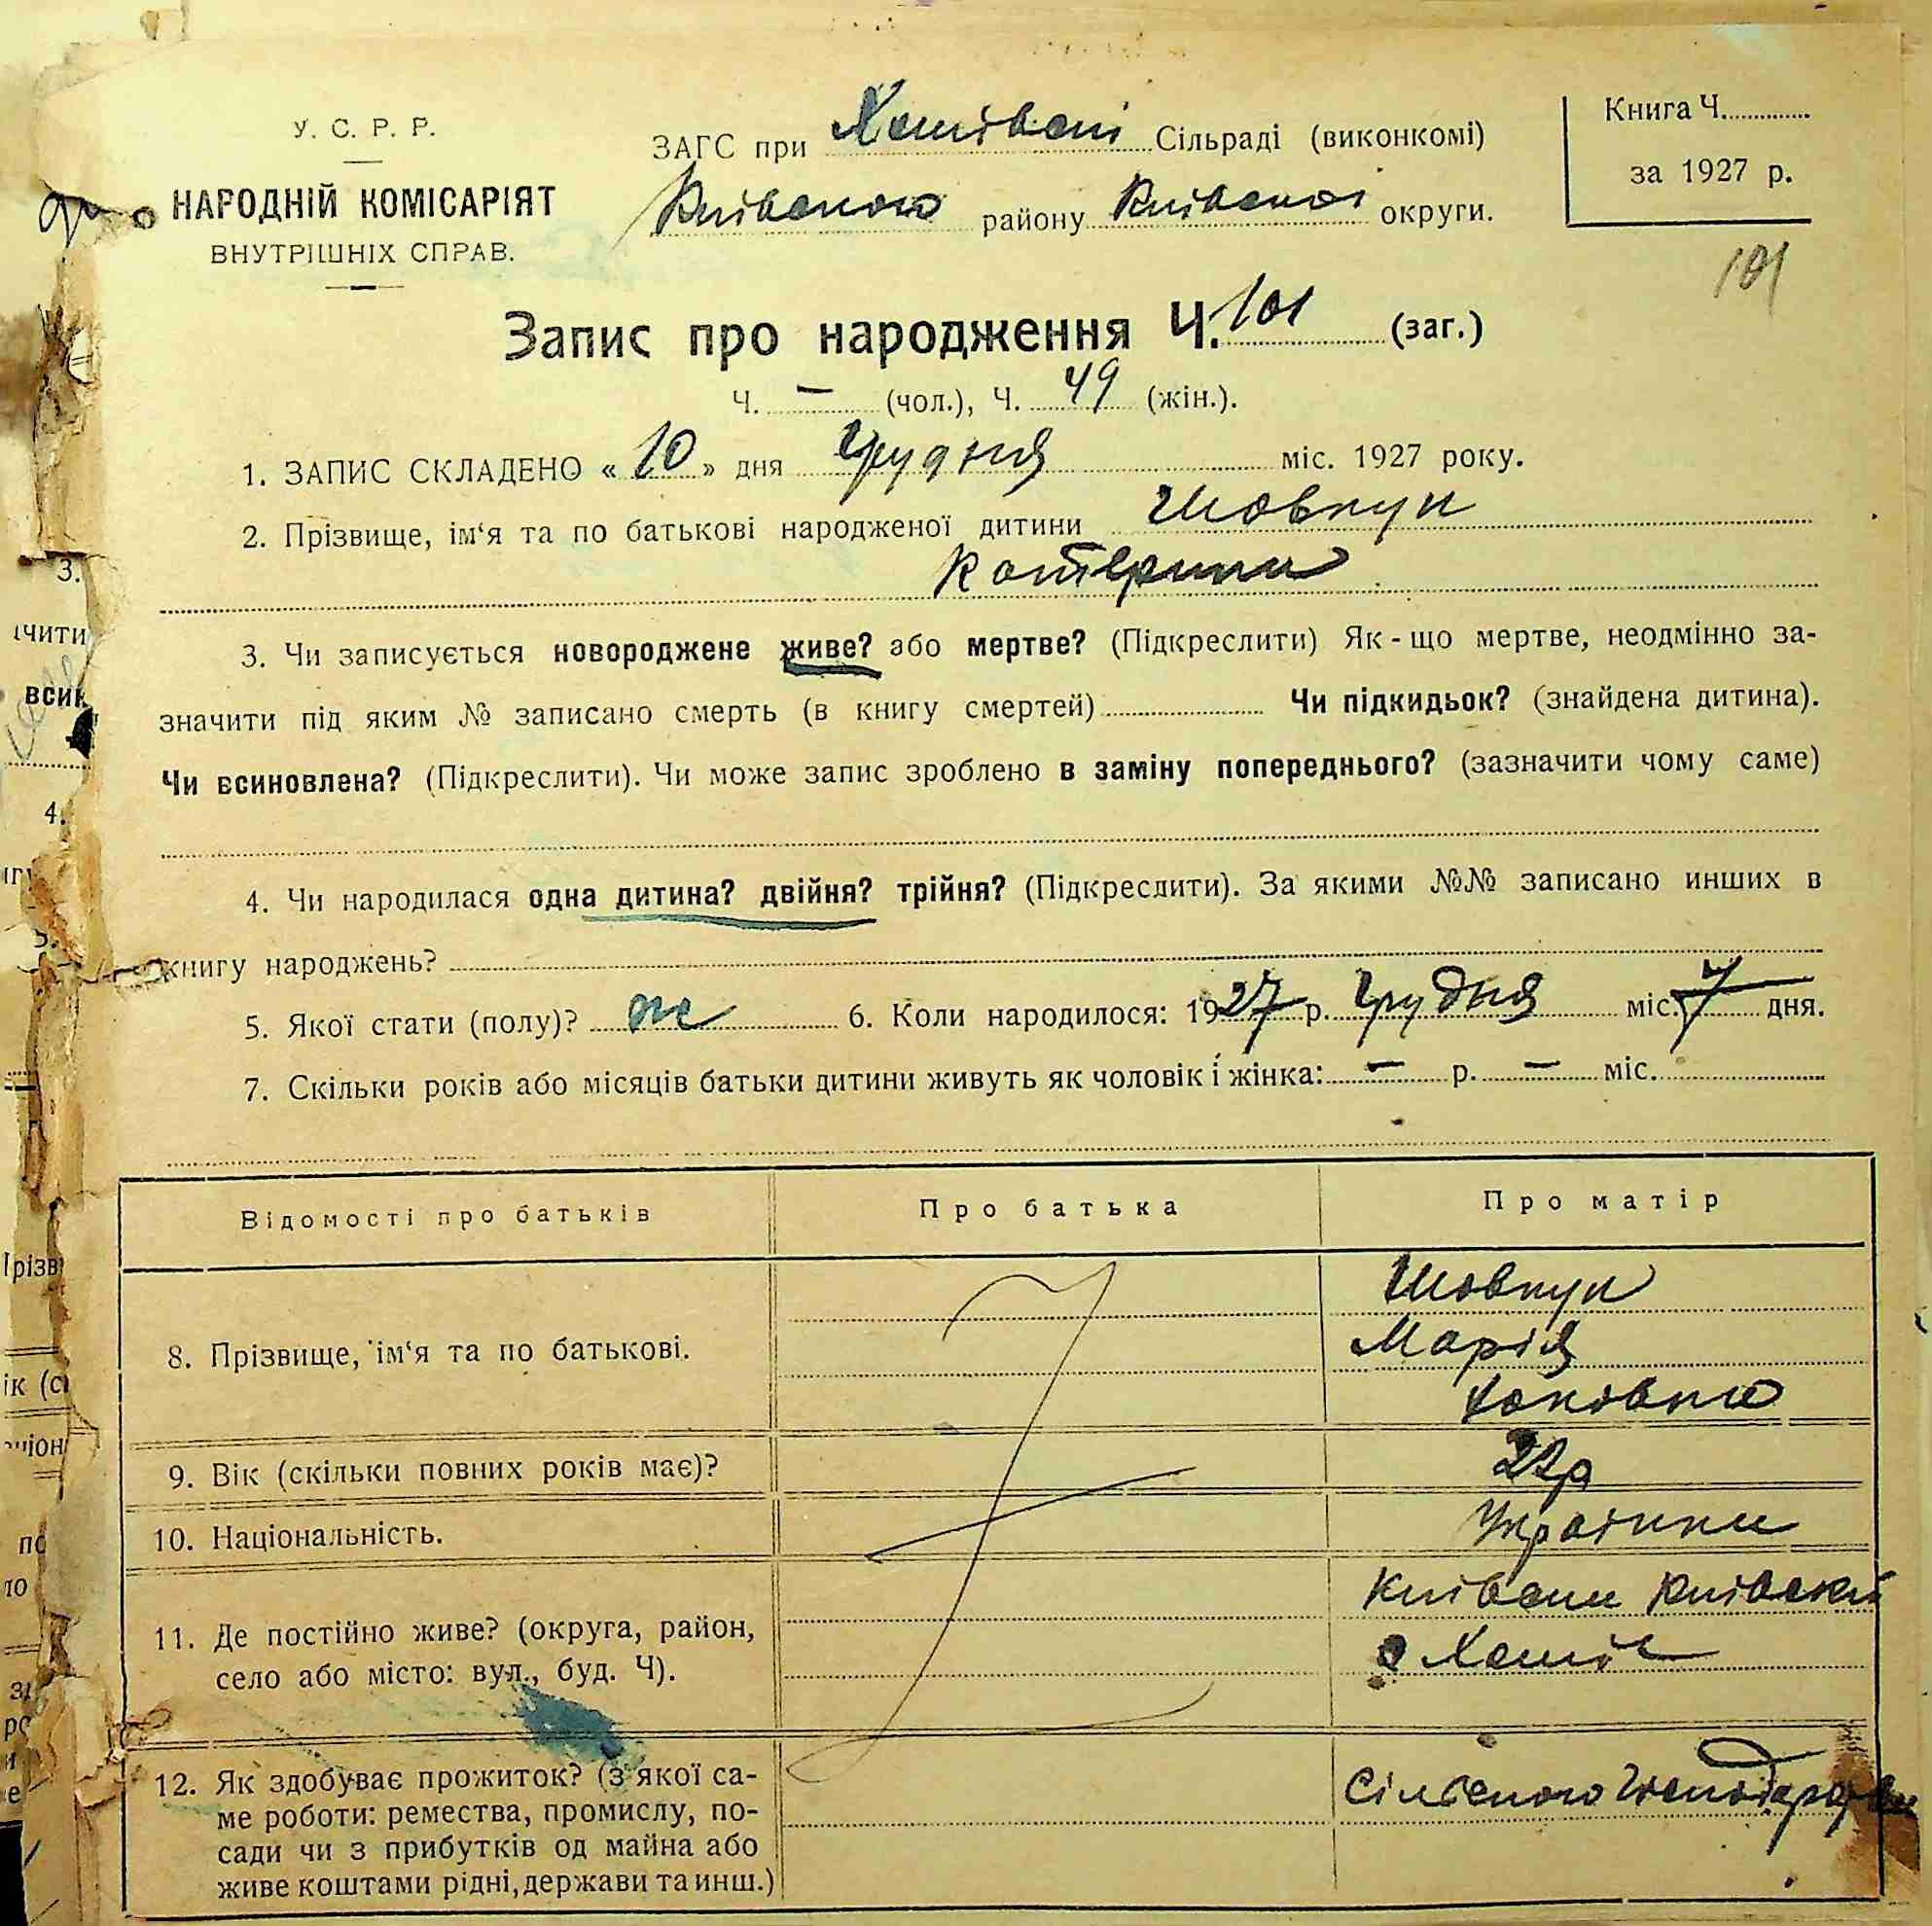 У. С. Р. Р.
НАРОДНІЙ КОМІСАРІЯТ
ВНУТРІШНІХ СПРАВ.
ЗАГС при Хотівскі Сільраді (виконкомі)
Київського району Київської округи.
Книга Ч.
за 1927 р.
101
Запис про народження Ч. 101 (заг.)
Ч. — (чол.), Ч. 49 (жін.).
1. ЗАПИС СКЛАДЕНО « 10 » дня Грудня міс. 1927 року.
2. Прізвище, ім‘я та по батькові народженої дитини Шовкун
Катерина
3. Чи записується новороджене живе? або мертве? (Підкреслити) Як - що мертве, неодмінно за-
значити під яким № записано смерть (в книгу смертей) Чи підкидьок? (знайдена дитина).
Чи всиновлена? (Підкреслити). Чи може запис зроблено в заміну попереднього? (зазначити чому саме)
4. Чи народилася одна дитина? двійня? трійня? (Підкреслити). За якими №№ записано инших в
книгу народжень?
5. Якої стати (полу)? ж 6. Коли народилося: 1927 р. Грудня міс. 7 дня.
7. Скільки років або місяців батьки дитини живуть як чоловік і жінка: — р. — міс.
Відомості про батьків Про батька Про матір
8. Прізвище, ім‘я та по батькові.
Шовкун
Марія
Яківна
9. Вік (скільки повних років має)? 22р
10. Національність. Українка
11. Де постійно живе? (округа, район,
село або місто: вул., буд. Ч).
Київськи Київский
с Хотів
12. Як здобуває прожиток? (з якої са-
ме роботи: ремества, промислу, по-
сади чи з прибутків од майна або
живе коштами рідні, держави та инш.)
Сільського